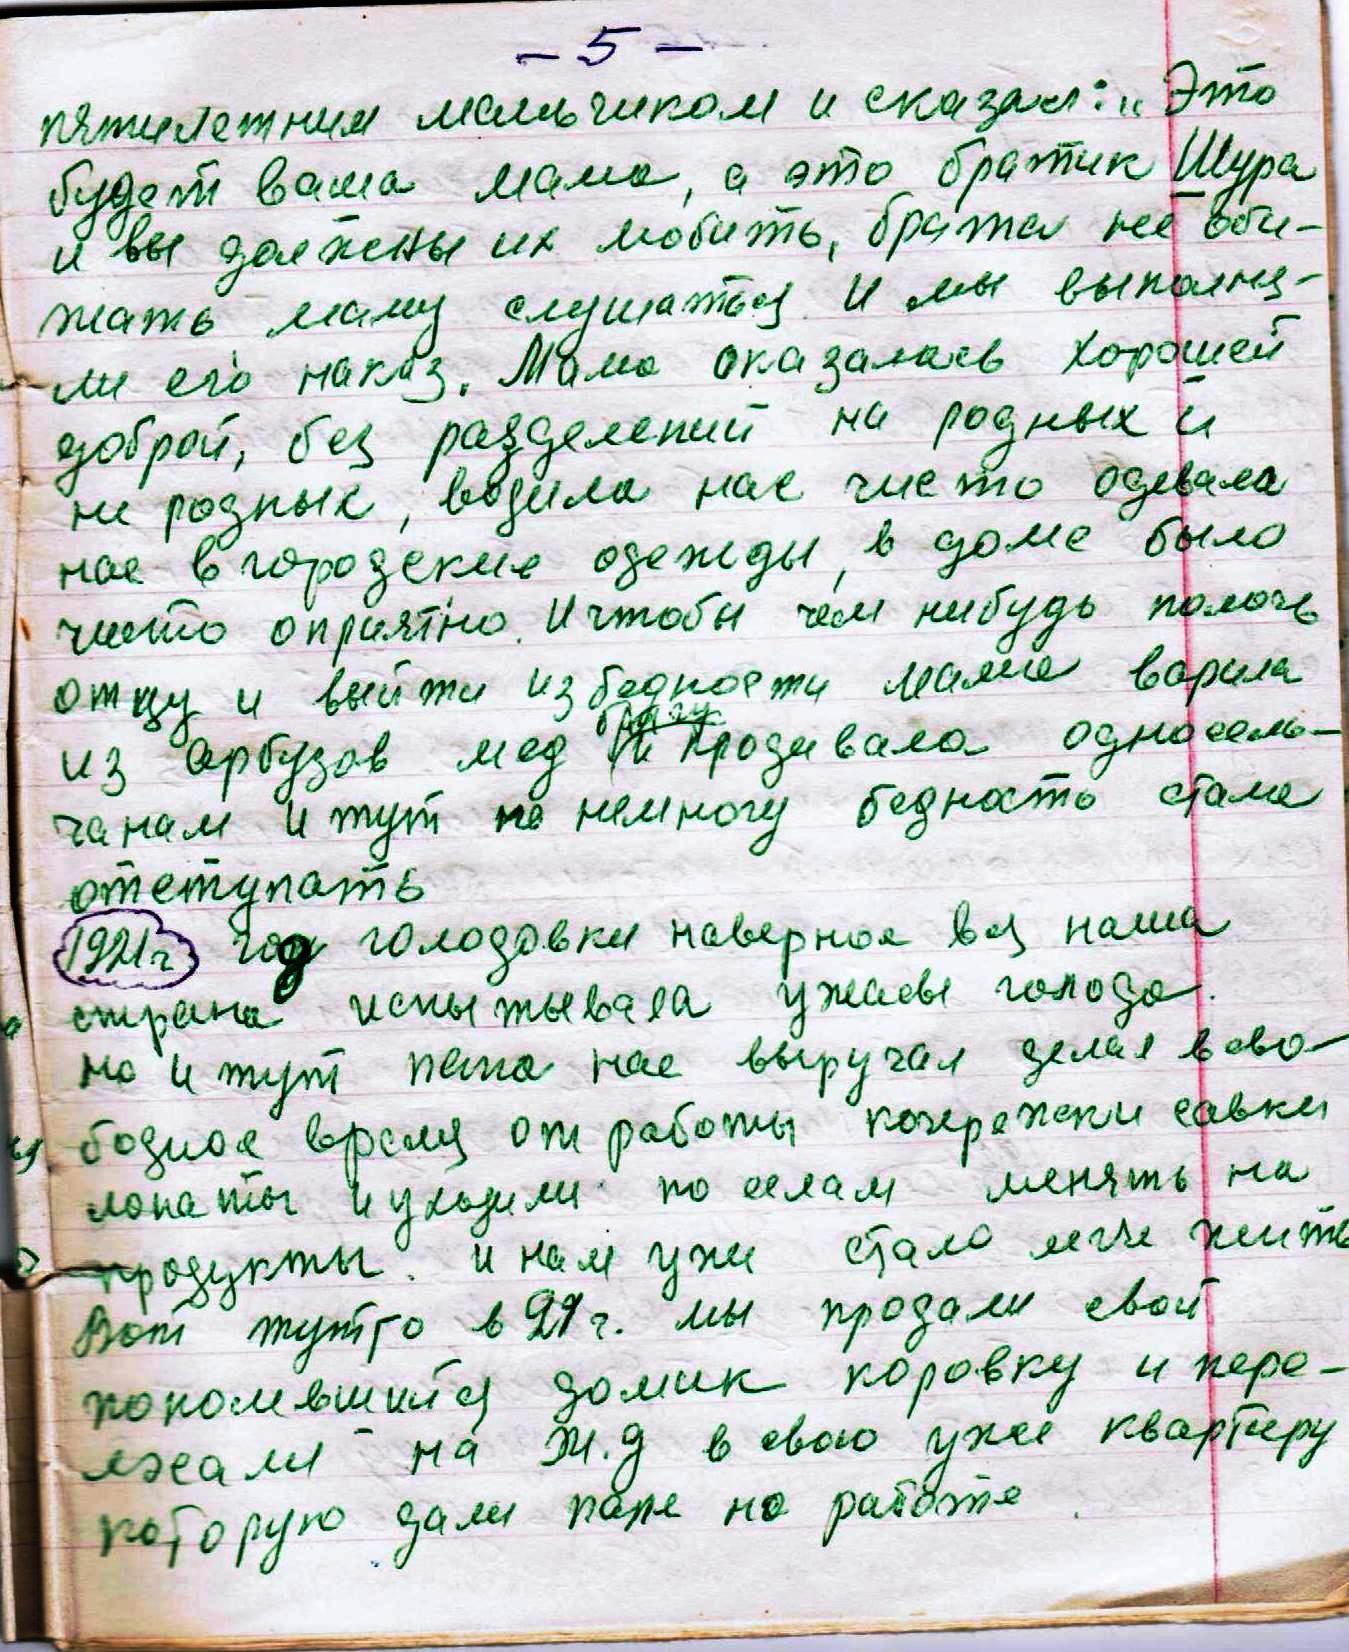 - 5 -
пятилетним мальчиком и сказал: „Это
будет ваша мама, а это братик Шура
и вы должны их любить, брата не оби-
жать маму слушаться и мы выполня-
ли его наказ. Мама оказалась хорошей
доброй, без разделений на родных и
не родных, водила нас чисто одевала
нас в городские одежды, в доме было
чисто опрятно. И чтобы чем нибудь помочь
отцу и выйти из бедности мама варила
брагу
из арбузов мед и продавала односель-
чанам и тут по немногу бедность стала
отступать
1921г год голодовки наверное вся наша
страна испытывала ужасы голода.
но и тут папа нас выручал делал в сво-
бодное время от работы кочережки савки
лопаты и уходили по селам менять на
продукты. и нам уже стало легче жить
Вот тутто в 21г. мы продали свой
домик коровку и пере-
ехали на Ж.д в свою уже квартиру
которую дали папе на работе.